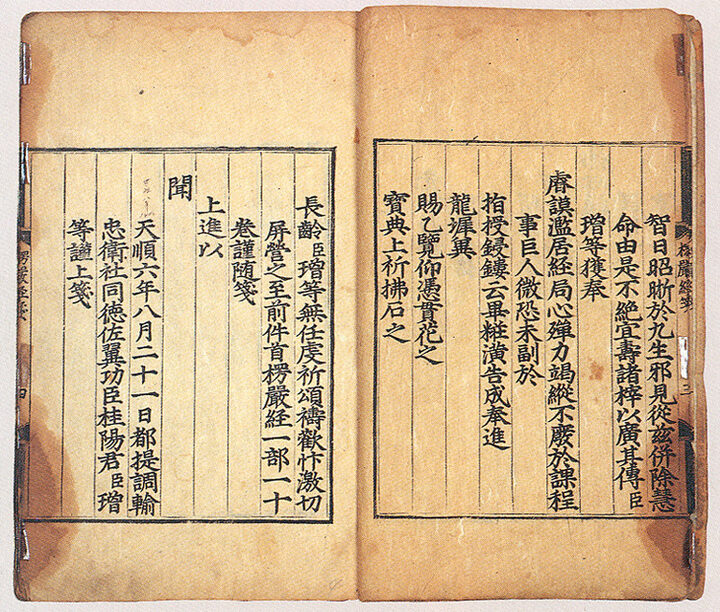 智日昭晣於九生邪見從玆併除慧
命由是不絶宜壽諸梓以廣其傳臣
璔等獲奉
睿謨濫居経局心殫力竭縱不廢於課程
事巨人微恐未副於
指授鋟鏤云畢粧潢告成奉進
龍墀兾
賜乙覽仰憑貫花之
寶典上祈拂石之
長齡臣璔等無任虔祈頌禱歡忭激切
屏營之至前件首楞嚴経一部一十
卷謹随箋
上進以
聞
天順六年八月二十一日都提調輸
忠衛社同德佐翼功臣桂陽君臣璔
等謹上箋
四